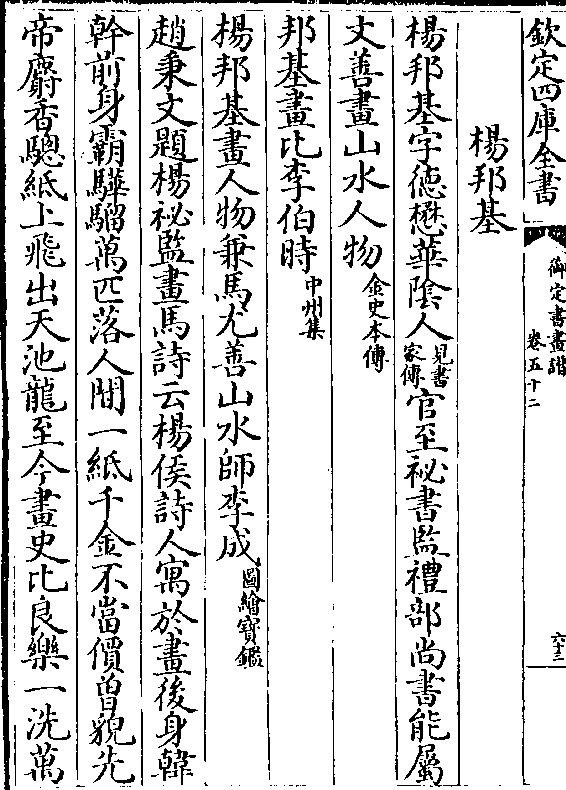 欽定四庫全書
御定書畫譜
卷五十二
六十三
楊邦基
楊邦基字德懋華陰人見書家傳官至祕書監禮部尚書能屬
文善畫山水人物金史本傳
邦基畫比李伯時中州集
楊邦基畫人物兼馬尤善山水師李成圖繪寶鑑
趙秉文題楊祕監畫馬詩云楊侯詩人寓於畫後身韓
幹前身霸驊騮萬匹落人間一紙千金不當價曽貌先
帝麝香驄紙上飛出天池龍至今畫史比良樂一洗萬